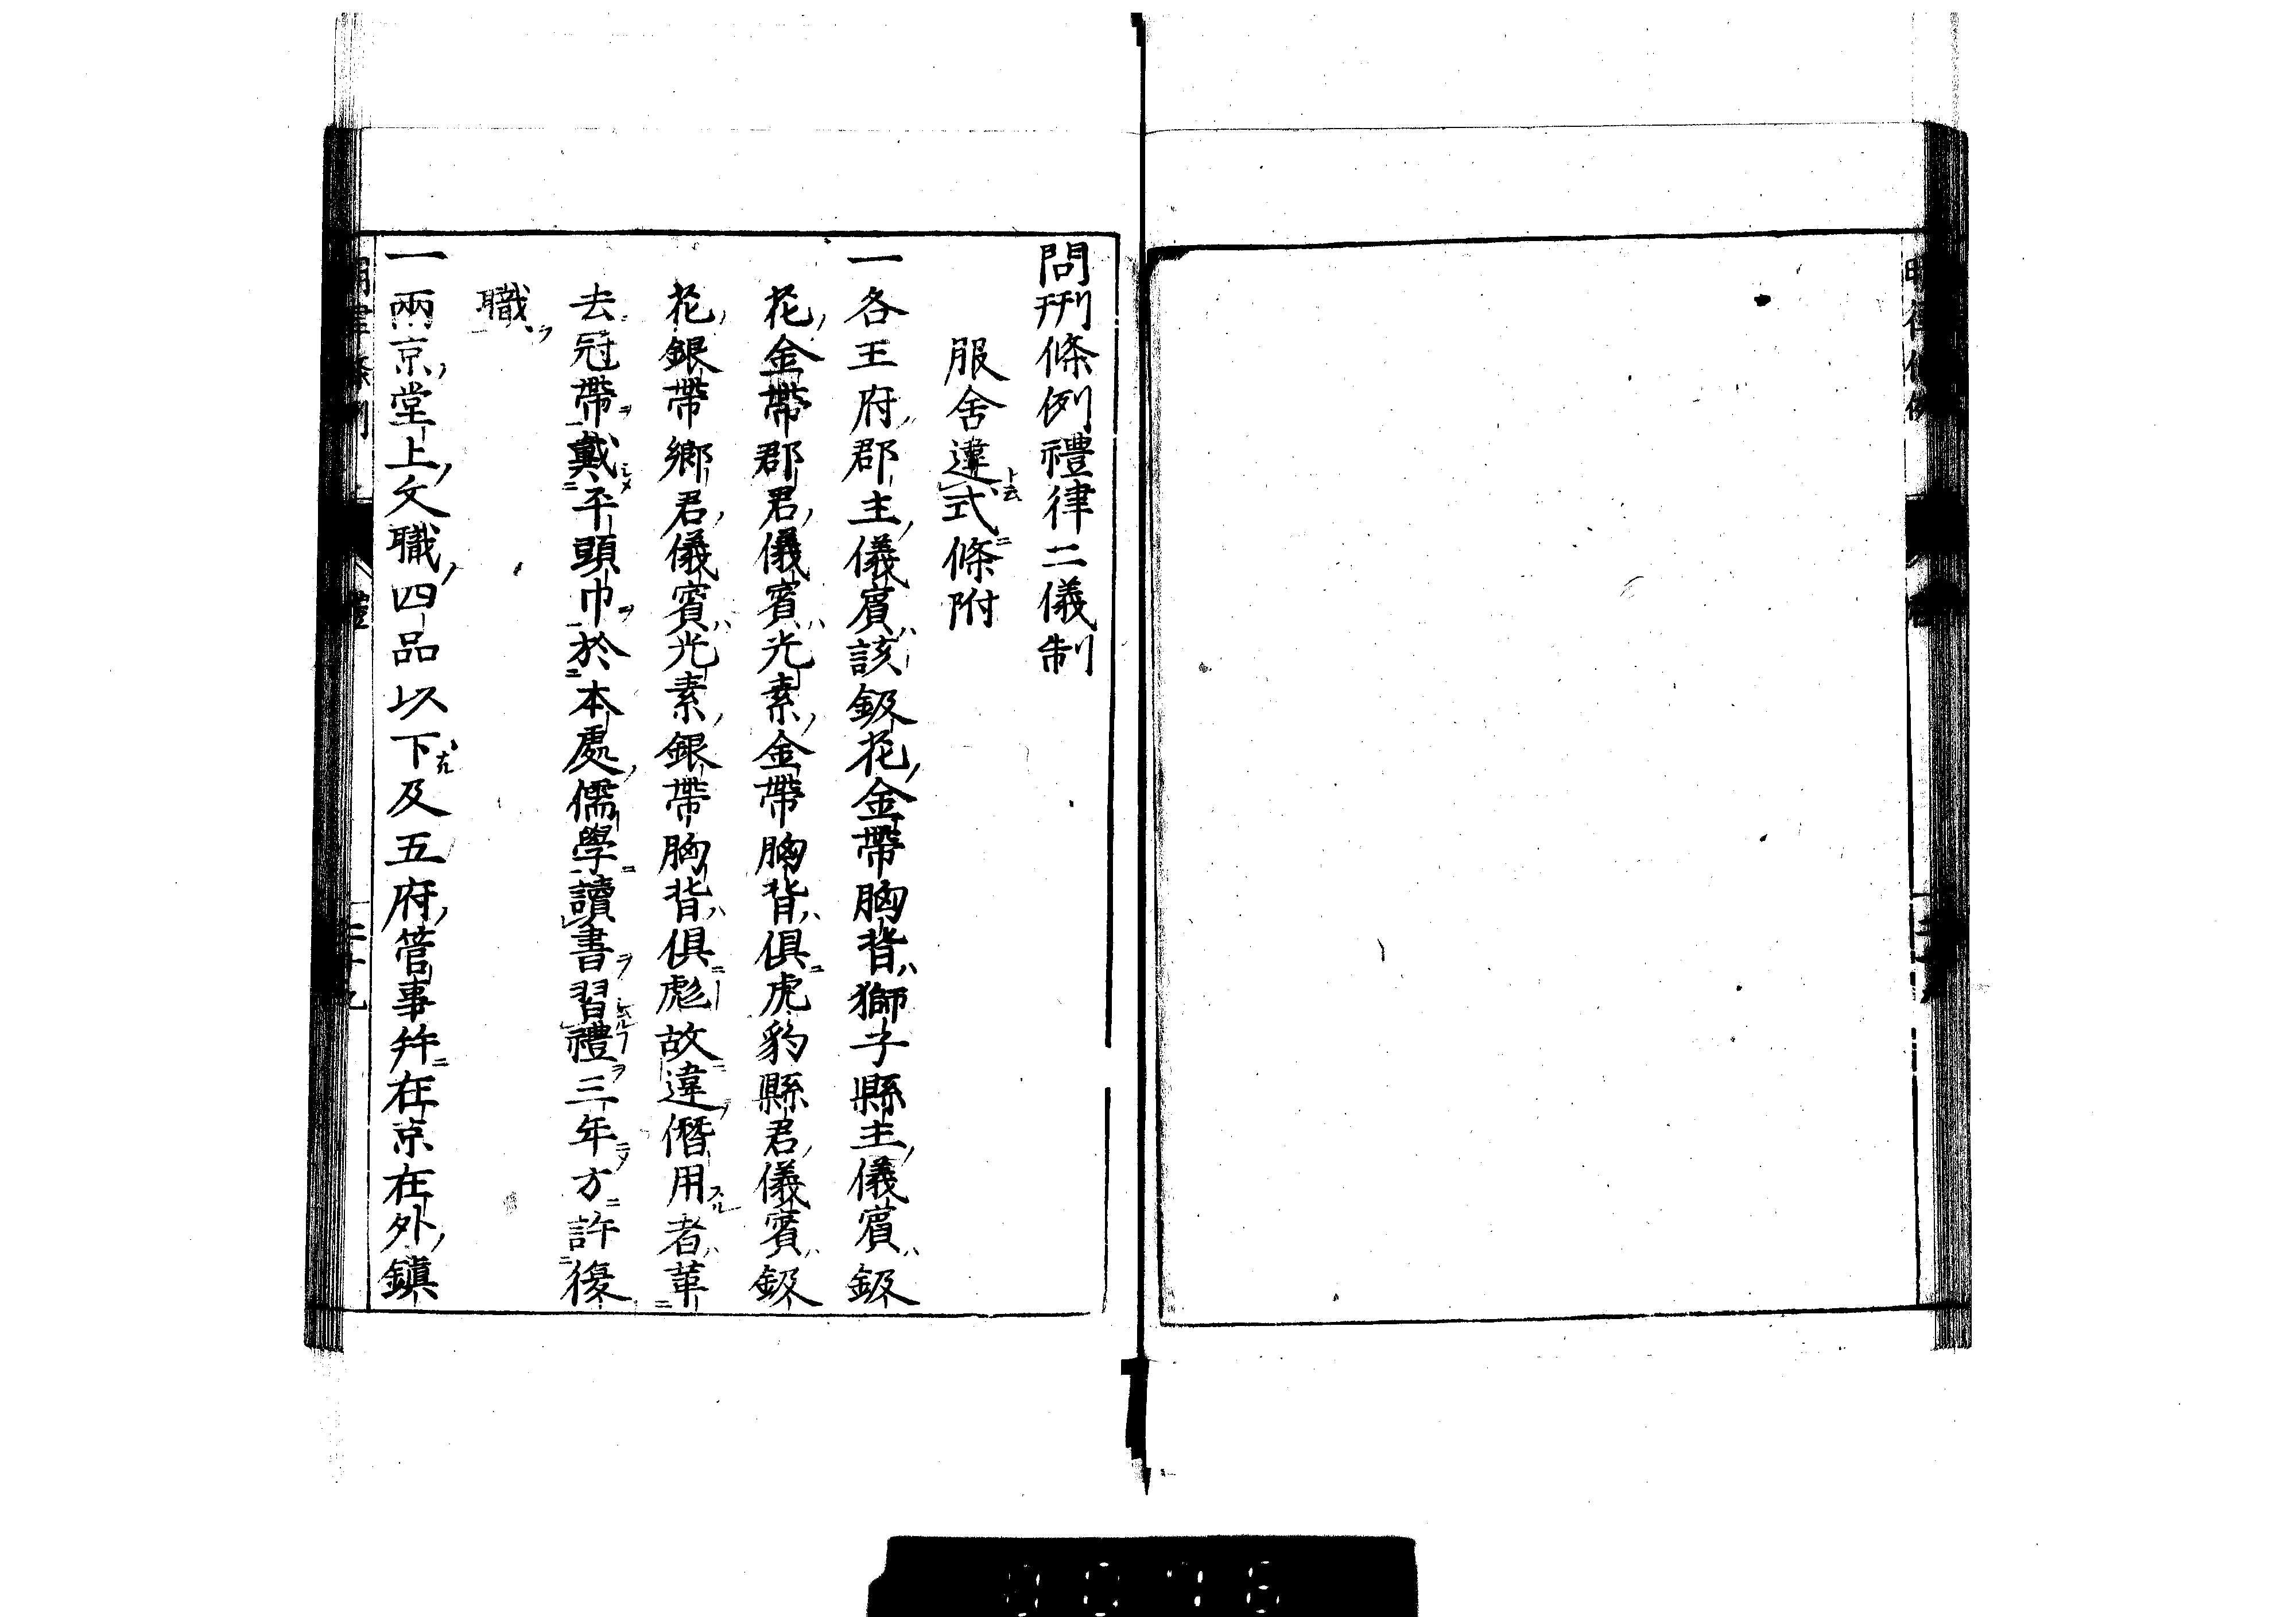 問刑條例禮律二儀制
服舍違式條附
一各王府郡主儀賓該鈒花金帶胸背獅子縣主儀賓鈒
花金帶郡君儀賓光素金帶胸背俱虎豹縣君儀賓鈒
花銀帶鄉君儀賓光素銀帶胸背俱彪故違僭用者革
去冠帶戴平頭巾於本處儒學讀書習禮三年方許復
職
一兩京堂上文職四品以下及五府管事幷在京在外鎮